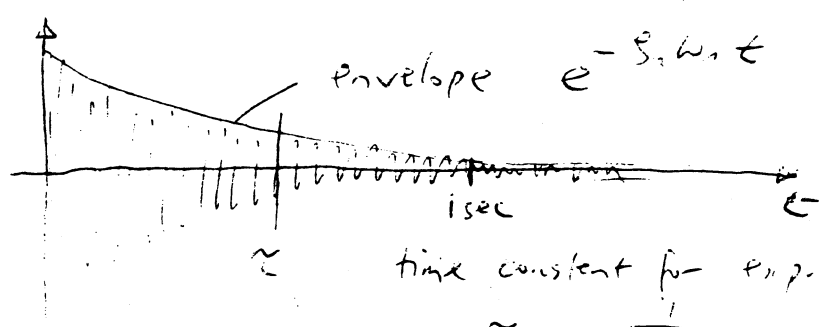 envelope e^{-ζ₁ω₁t}
1 sec
t
τ
time constant for exp.
τ